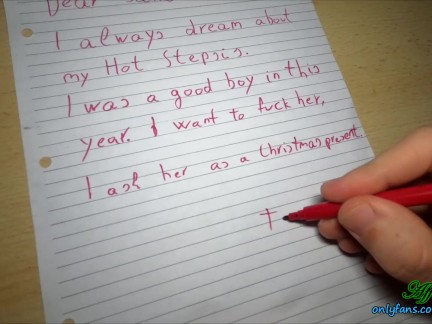 Dear
I always dream about
my Hot Stepsis.
I was a good boy in this
year. I want to fuck her,
I ask her as a Christmas present
T
onlyfans.co